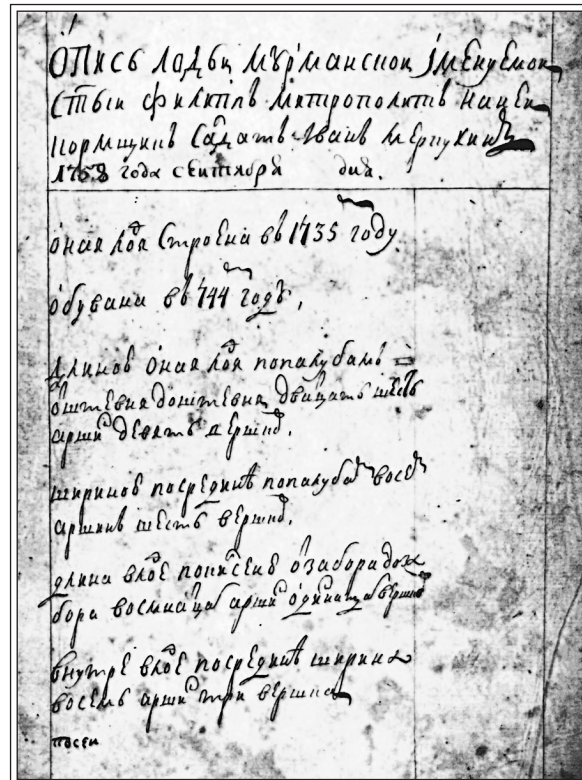 Опись лодьи мурманскои іменуемои
стыи Филипъ митрополитъ на неи
кормщикъ Садатъ Иванъ
1758 года сентября дня.
оная лодя строена въ 1735 году
обувана въ 744 годъ,
длиною оная лодя попалубамъ
о штевня доштевня двацать шесть
аршинъ девять вершко.
шириною посрединѣ попалубамъ восемъ
аршинъ шесть вершко.
длина влодѣ
бора восмнаца аршинъ одинаца вершко
внутре влодѣ посрединѣ ширина
восемъ аршинъ три вершка